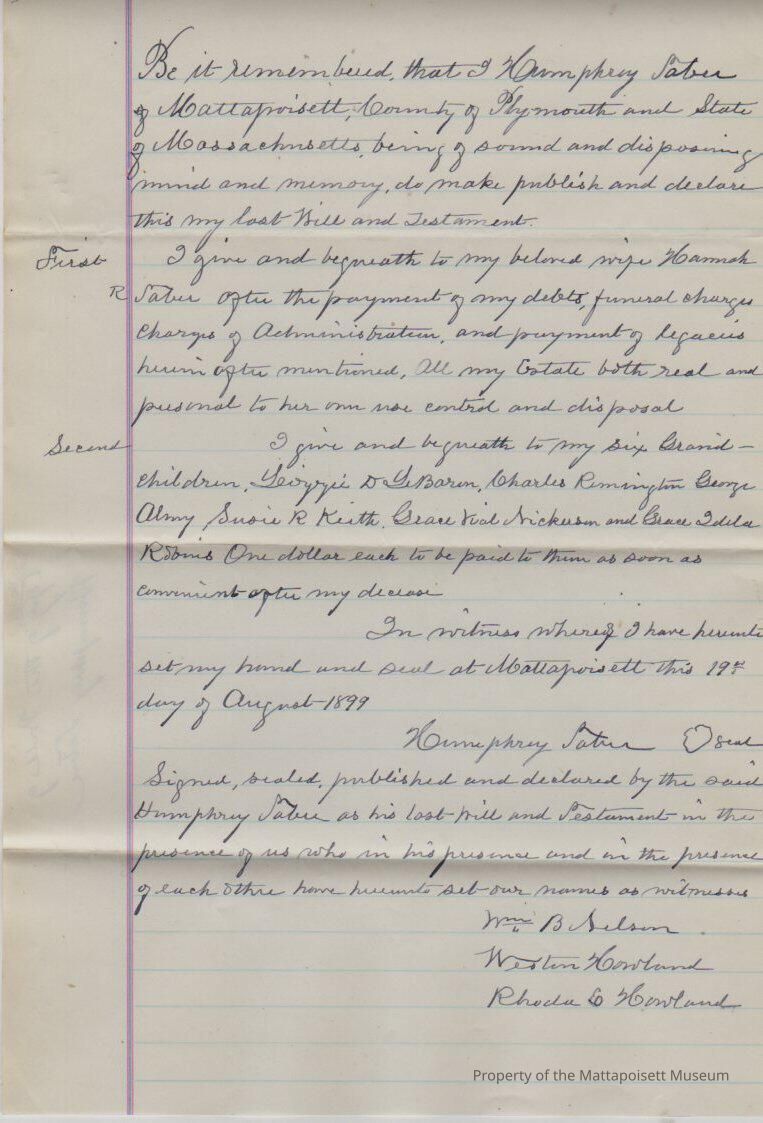 Be it remembered, that I Humphrey Taber
of Mattapoisett, County of Plymouth and State
of Massachusetts, being of sound and disposing
mind and memory, do make publish and declare
this my last Will and Testament.
First I give and bequeath to my beloved wife Hannah
R Taber after the payment of my debts, funeral charges
charges of Administration, and payment of legacies
herein after mentioned, All my Estate both real and
personal to her own use control and disposal
Second I give and bequeath to my six Grand-
children, Lizzie D LeBaron, Charles Remington George
Almy Susie R Keith, Grace Vial Nickerson and Grace Idella
Robins One dollar each to be paid to them as soon as
convenient after my decease
In witness whereof I have hereunto
set my hand and seal at Mattapoisett this 19th
day of August 1899
Humphrey Taber seal
Signed, sealed, published and declared by the said
Humphrey Taber as his last Will and Testament in the
presence of us who in his presence and in the presence
of each other have hereunto set our names as witnesses
Wm B Nelson
Weston Howland
Rhoda Howland
Property of the Mattapoisett Museum